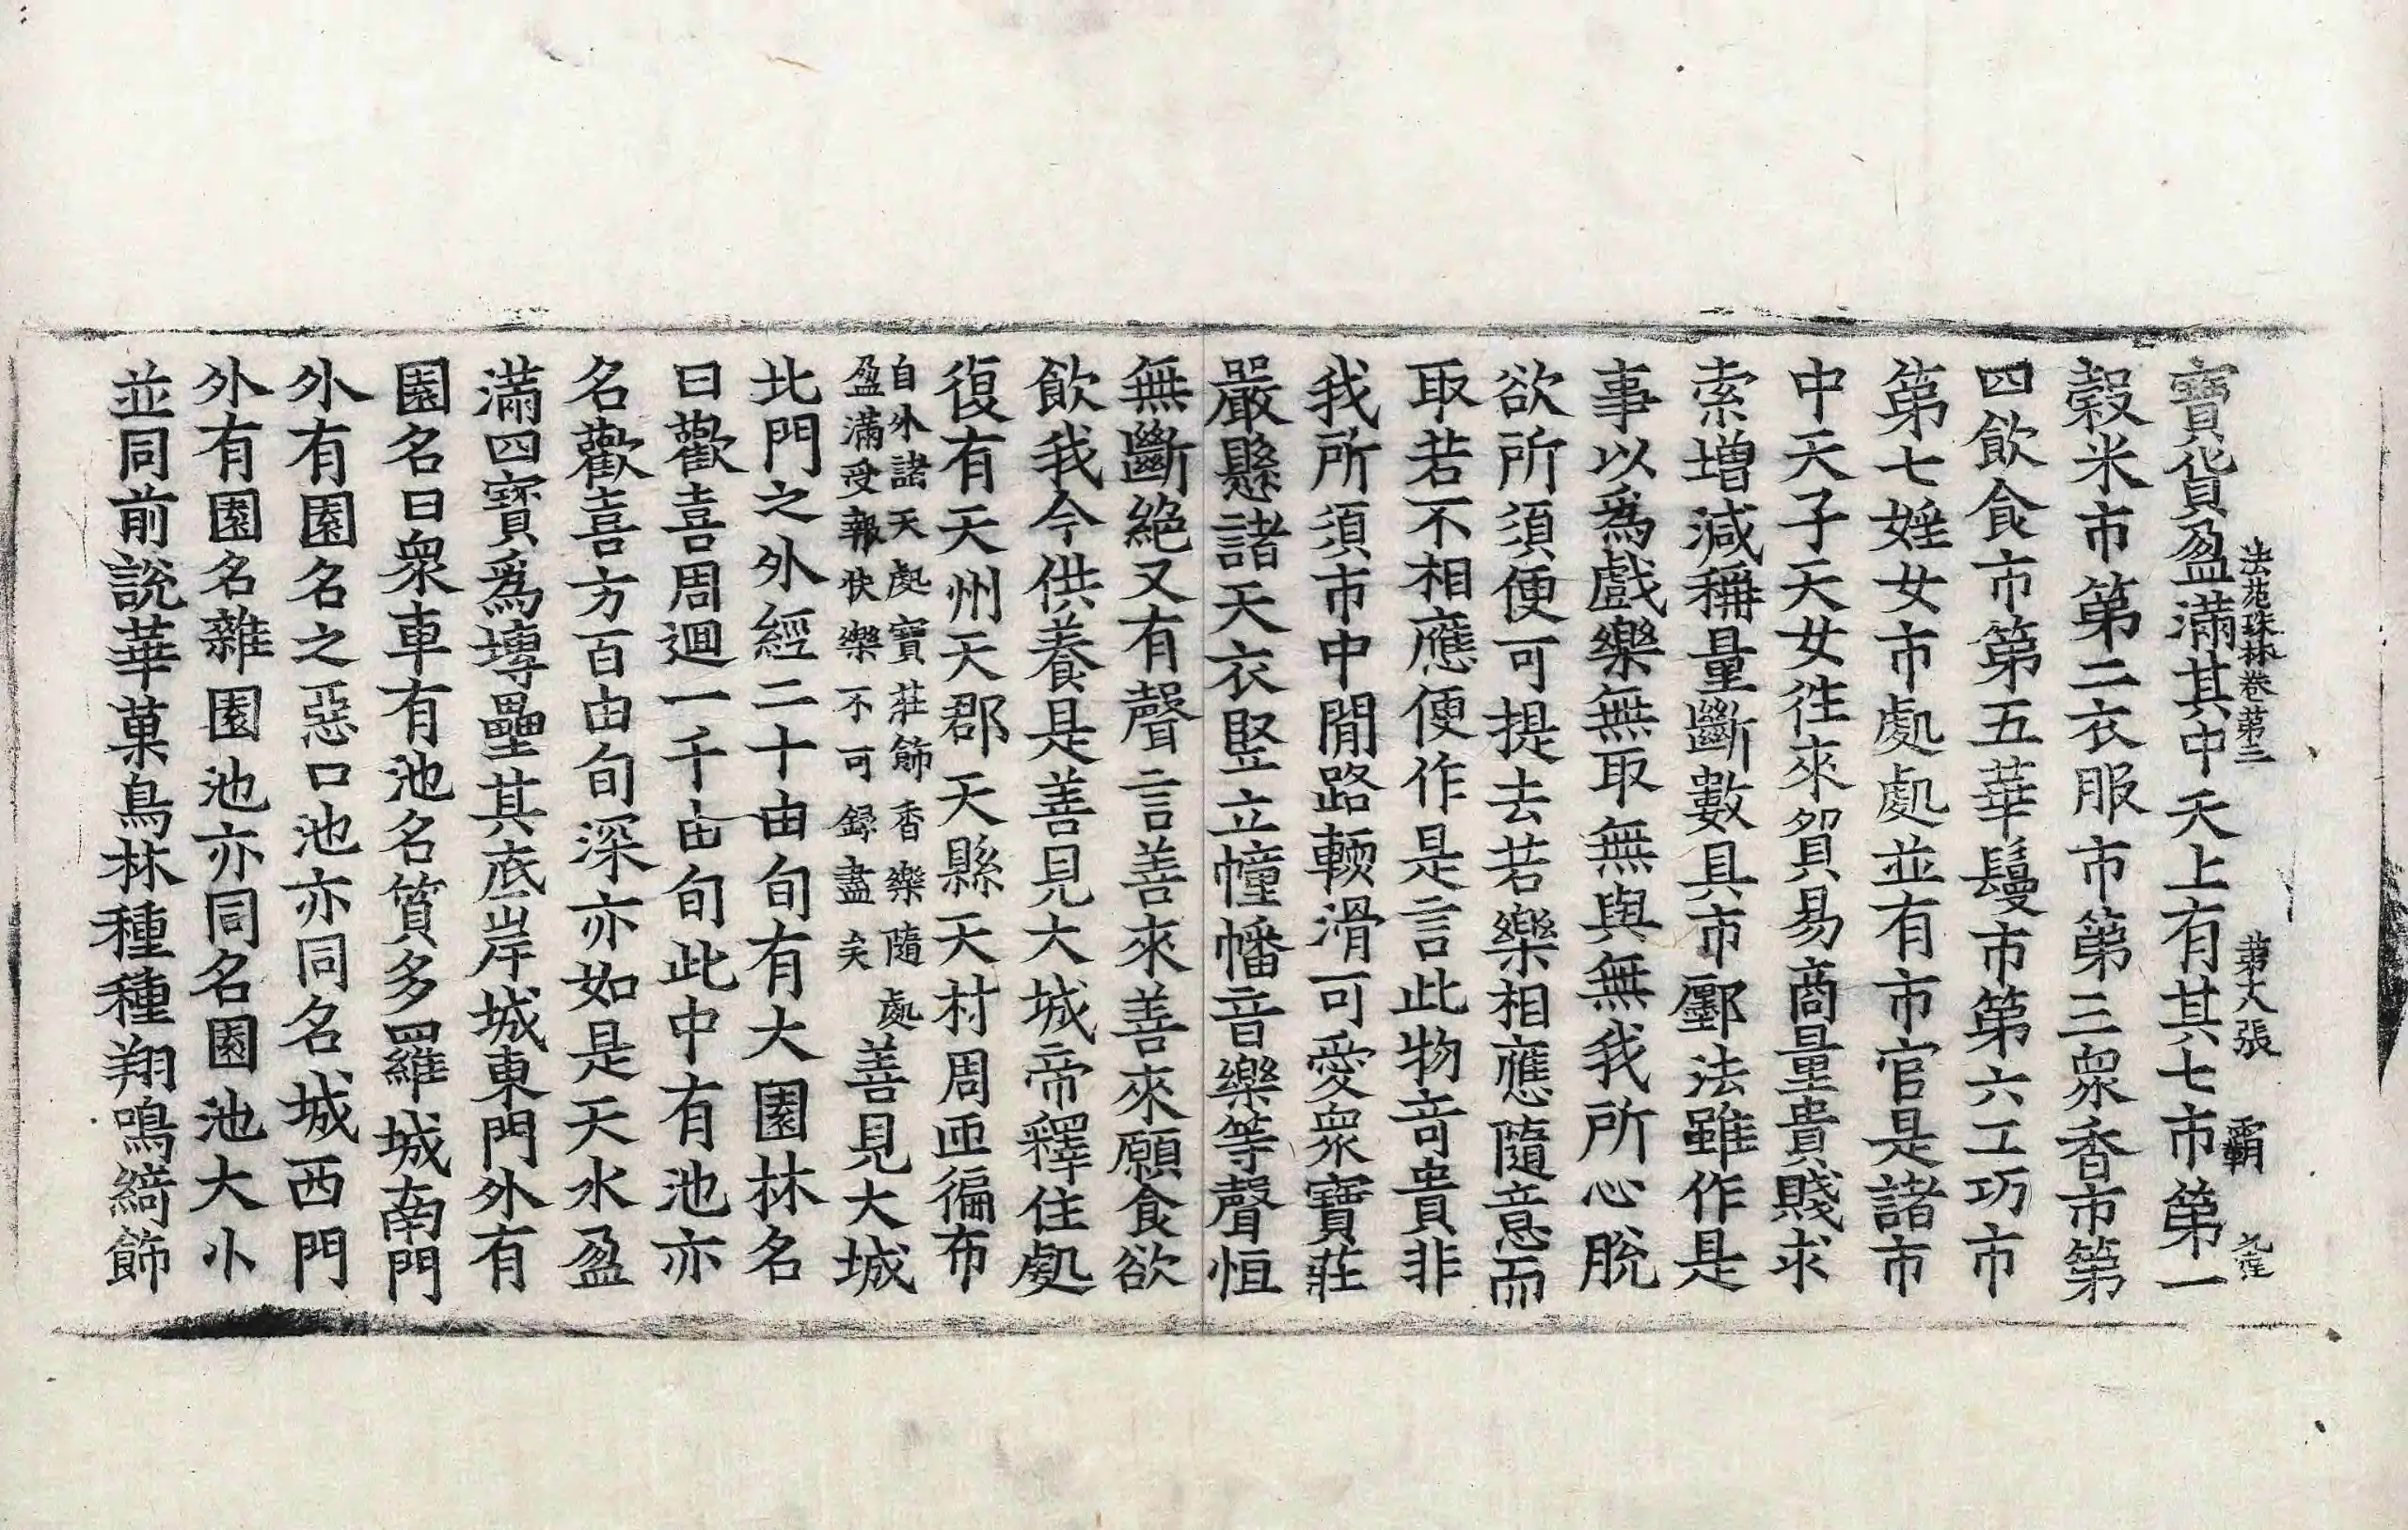 法苑珠林卷第三 第六張 覇
寶貨盈滿其中天上有其七市第一
穀米市第二衣服市第三衆香市第
四飲食市第五華鬘市第六工巧市
第七婬女市處處並有市官是諸市
中天子天女往來貿易商量貴賤求
索增減稱量斷數具市廛法雖作是
事以爲戲樂無取無與無我所心脫
欲所須便可提去若樂相應隨意而
取若不相應便作是言此物奇貴非
我所須市中閒路輭滑可愛衆寶莊
嚴懸諸天衣竪立幢幡音樂等聲恒
無斷絕又有聲言善來善來願食欲
飲我今供養是善見大城帝釋住處
復有天州天郡天縣天村周匝徧布
自外諸天處寶莊飾香樂隨處
盈滿受報快樂不可錄盡矣
善見大城
北門之外經二十由旬有大園林名
曰歡喜周迴一千由旬此中有池亦
名歡喜方百由旬深亦如是天水盈
滿四寶爲塼壘其底岸城東門外有
園名曰衆車有池名質多羅城南門
外有園名之惡口池亦同名城西門
外有園名雜園池亦同名園池大小
並同前說華菓鳥林種種翔鳴綺飾